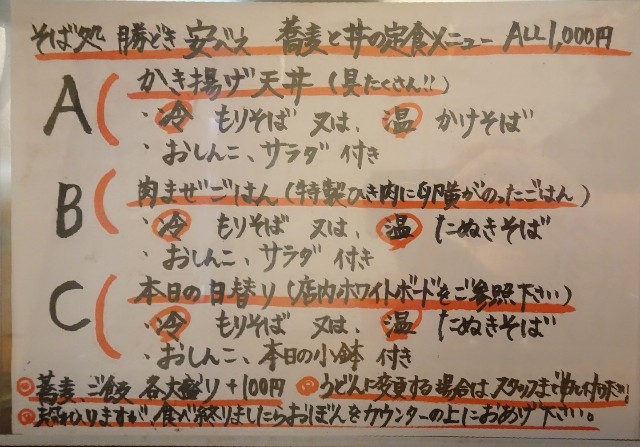 そば処 勝どき 安べえ 蕎麦と丼の定食メニュー ALL1,000円
A かき揚げ天丼 (具たくさん!!)
・冷 もりそば 又は、温 かけそば
・おしんこ、サラダ 付き
B 肉まぜごはん (特製ひき肉に卵黄がのったごはん)
・冷 もりそば 又は、温 たぬきそば
・おしんこ、サラダ 付き
C 本日の日替り (店内ホワイトボードをご参照下さい)
・冷 もりそば 又は、温 たぬきそば
・おしんこ、本日の小鉢 付き
◎蕎麦 ご飯 各大盛り +100円 ◎うどんに変更する場合は、スタッフまで
りますが、食べ終りましたらおぼんをカウンターの上におあげ下さい。